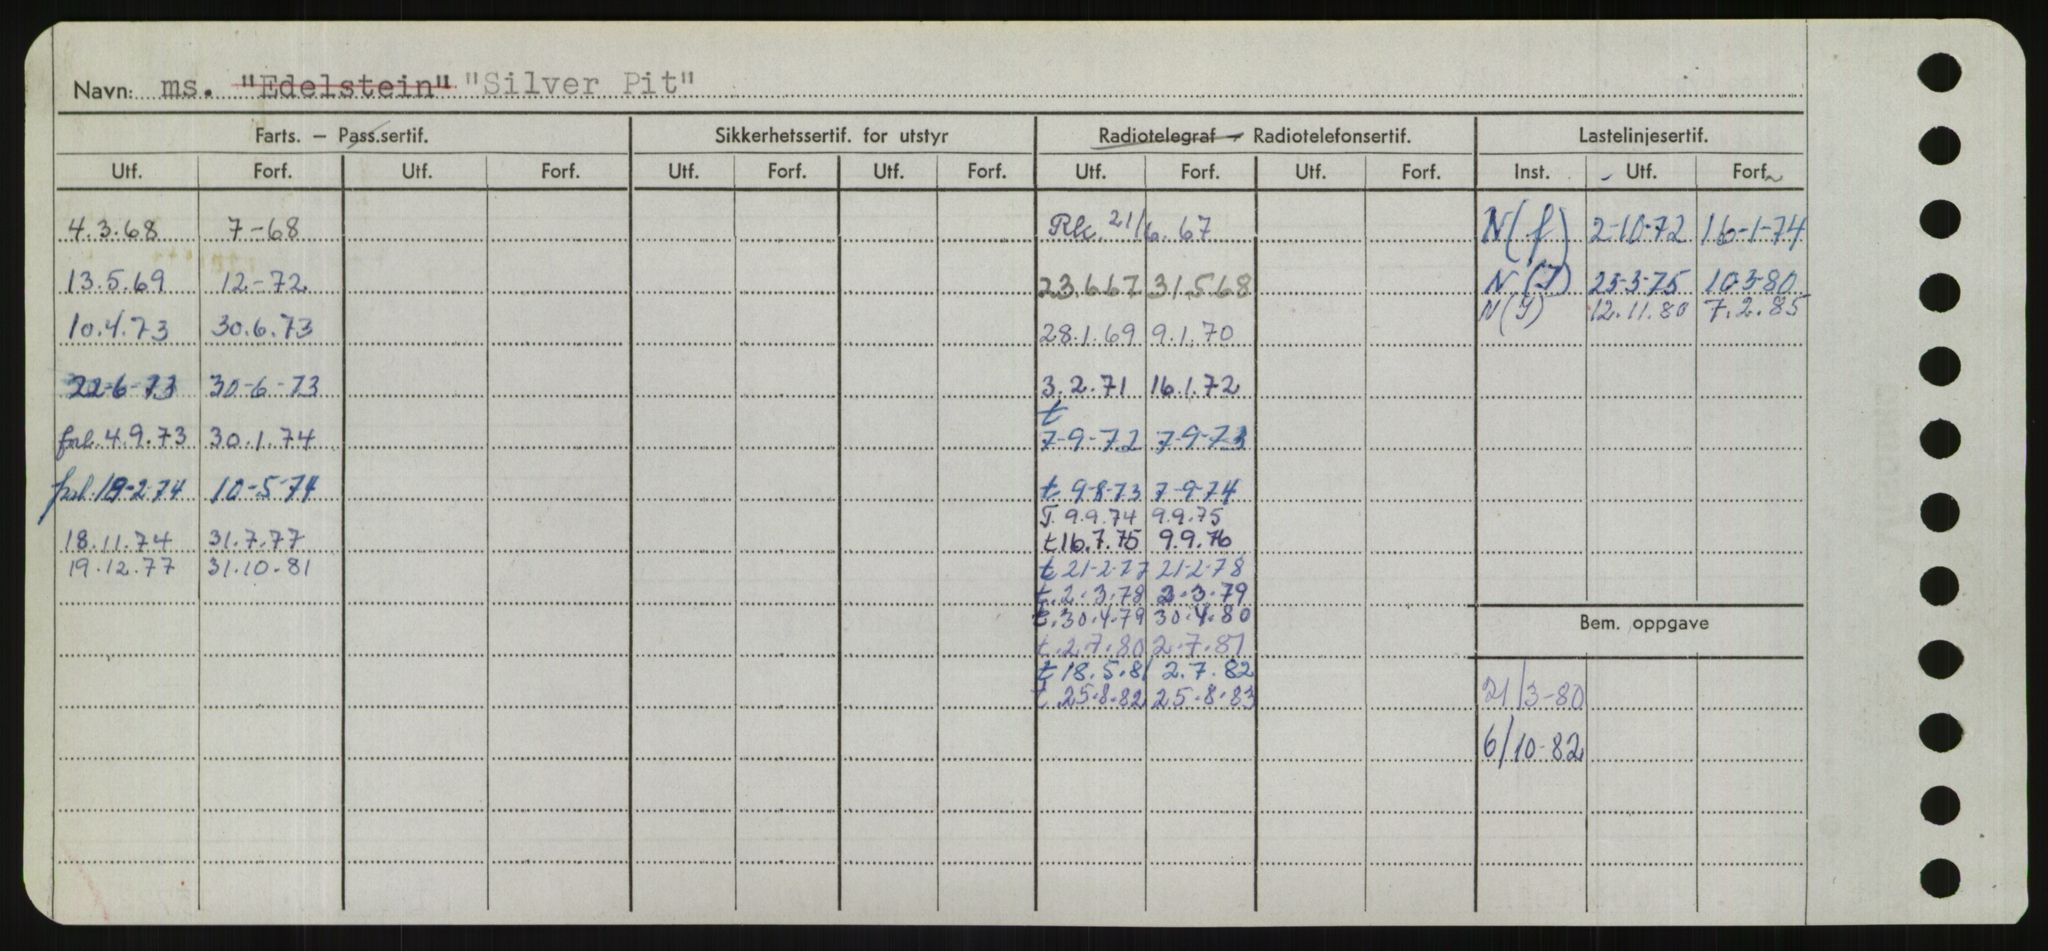 Navn: ms. "Edelstein" "Silver Pit"
Farts. – Pass.sertif. Sikkerhetssertif. for utstyr Radiotelegraf – Radiotelefonsertif. Lastelinjesertif.
Utf. Forf. Utf. Forf. Utf. Forf. Utf. Forf. Utf. Forf. Utf. Forf. Inst. Utf. Forf.
4.3.68 7-68 Rkc. 21/6.67 N(f) 2-10-72 16-1-74
13.5.69 12-72 23.6.67 31.5.68 N(I) 25-3-75 10-3-80
N(I) 12.11.80 7.2.85
10.4.73 30.6.73 28.1.69 9.1.70
22-6-73 30-6-73 3.2.71 16.1.72
t
fork. 4.9.73 30.1.74 7-9-72 7-9-73
fork. 19-2-74 10-5-74 t 9-8-73 7-9-74
T. 9.9.74 9.9.75
18.11.74 31.7.77 t 16.7.75 9.9.76
19.12.77 31.10.81 t 21-2-77 21-2-78
t. 2.3.78 2.3.79
t. 30.4.79 30.4.80
Bem. oppgave
t. 2.7.80 2.7.81
t 18.5.81 2.7.82
t 25.8.82 25.8.83
21/3-80
6/10-82